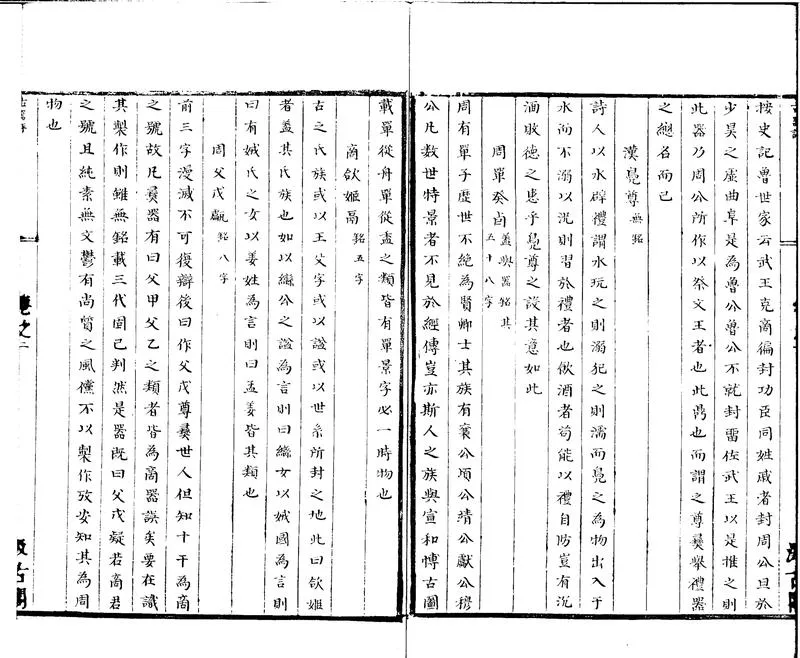 按史記魯世家云武王克商徧封功臣同姓戚者封周公旦於
少昊之虛曲阜是為魯公魯公不就封畱佐武王以是推之則
此器乃周公所作以祭文王者也此鼎也而謂之尊彝舉禮器
之總名而已
漢鳧尊無銘
詩人以水辟禮謂水玩之則溺犯之則濡而鳧之為物出入于
水而不溺以況則習於禮者也飲酒者苟能以禮自防豈有沉
湎敗德之患乎鳧尊之設其意如此
周單癸卣蓋與器銘共五十八字
周有單子歷世不絕為賢卿士其族有襄公頃公靖公獻公穆
公凡数世特景者不見於經傳豈亦斯人之族與宣和博古圖
載單從舟單從盉之類皆有單景字必一時物也
商欱姬鬲銘五字
古之氏族或以王父字或以諡或以世系所封之地此曰欱姬
者蓋其氏族也如以繼公之諡為言則曰繼女以娀國為言則
曰有娀氏之女以姜姓為言則曰孟姜皆其類也
周父戊甗銘八字
前三字漫滅不可復辯後曰作父戊尊彝世人但知十干為商
之號故凡彝器有曰父甲父乙之類者皆為商器誤矣要在識
其製作則雖無銘載三代固已判然是器既曰父戊疑若商君
之號且純素無文鬱有尚質之風儻不以製作攷安知其為周
物也
卷之二
汲古閣